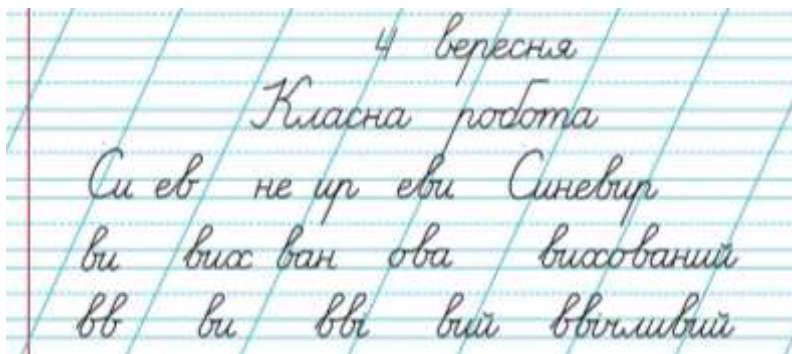 4 вересня
Класна робота
Си ев не ир еви Синевир
ви вих ван ова вихований
вв ви вві вий ввічливий